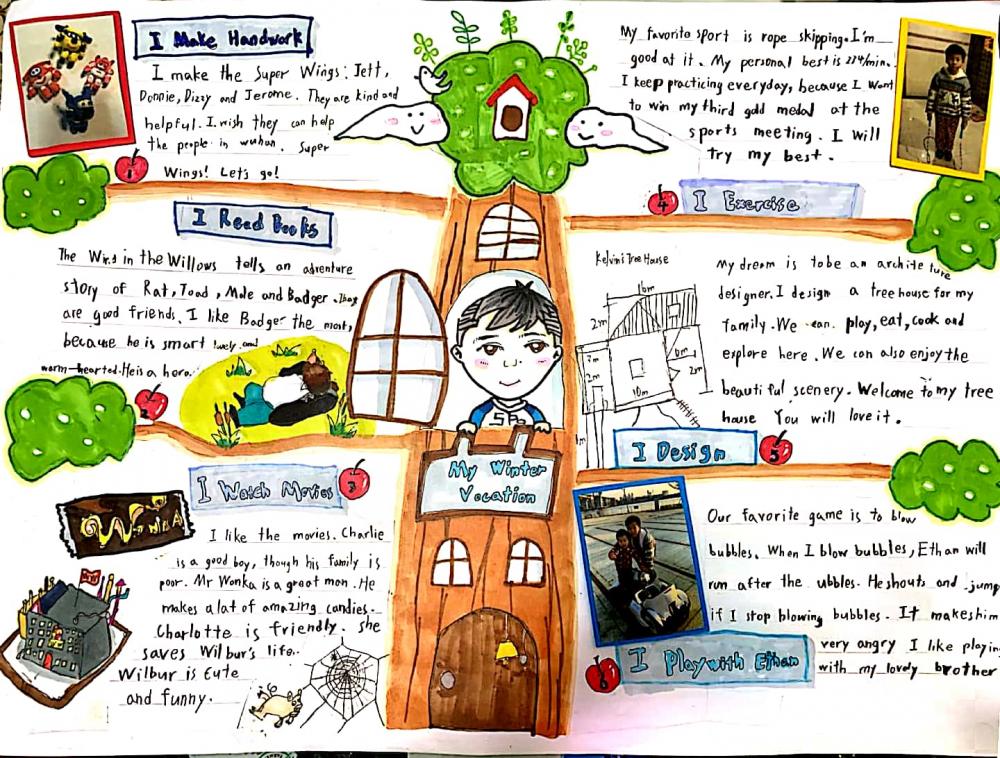 I Make Handwork
I make the Super Wings: Jett,
Donnie, Dizzy and Jerome. They are kind and
helpful. I wish they can help
the people in wuhan. Super
Wings! Let's go!
1
I Read Books
The Wind in the Willows tells an adventure
story of Rat, Toad, Mole and Badger. They
are good friends. I like Badger the most,
because he is smart lively and
warm-hearted. He is a hero.
2
I Watch Movies
3
WONKA
I like the movies. Charlie
is a good boy, though his family is
poor. Mr Wonka is a great man. He
makes a lot of amazing candies.
Charlotte is friendly. she
saves Wilbur's life.
Wilbur is cute
and funny.
My Winter
Vacation
My favorite sport is rope skipping. I'm
good at it. My personal best is 224/min.
I keep practicing everyday, because I want
to win my third gold medal at the
sports meeting. I will
try my best.
4
I Exercise
Kelvin's Tree House
16m
2m
2m
2m
10m
My dream is to be an architeture
designer. I design a tree house for my
family. We can play, eat, cook and
explore here. We can also enjoy the
beautiful scenery. Welcome to my tree
house You will love it.
I Design
5
Our favorite game is to blow
bubbles. When I blow bubbles, Ethan will
run after the ubbles. He shouts and jump
if I stop blowing bubbles. It makes him
very angry I like playing
with my lovely brother
6
I Play with Ethan